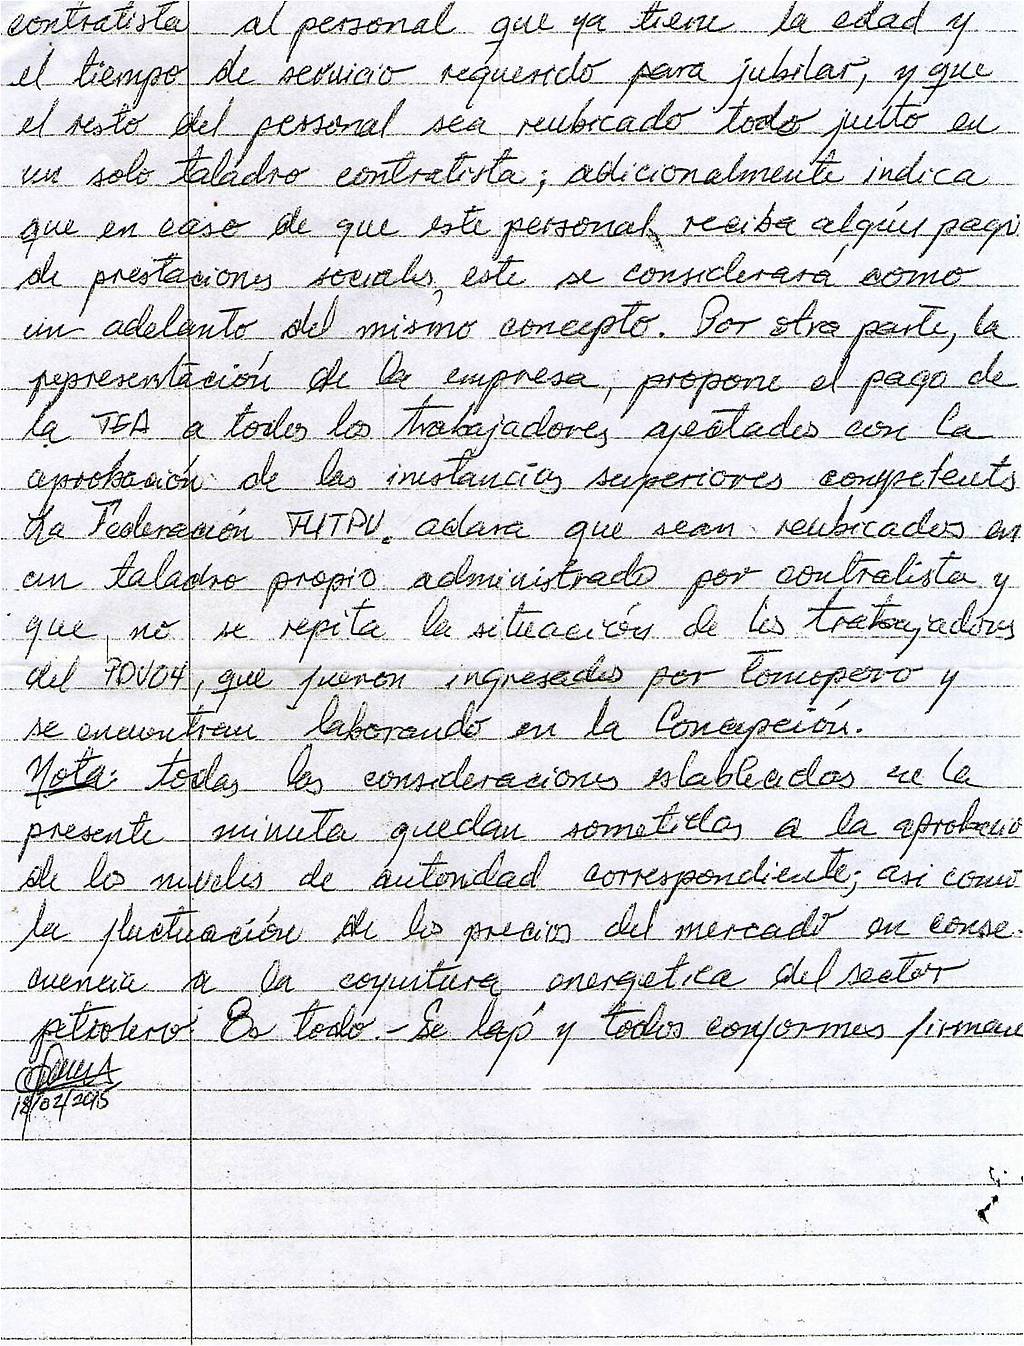 contratista al personal que ya tiene la edad y
el tiempo de servicio requerido para jubilar, y que
el resto del personal sea reubicado todo junto en
un solo taladro contratista; adicionalmente indica
que en caso de que este personal reciba algún pago
de prestaciones sociales, este se considerará como
un adelanto del mismo concepto. Por otra parte, la
representación de la empresa, propone el pago de
la TEA a todos los trabajadores afectados con la
aprobación de las instancias superiores competents
La Federación FUTPV. aclara que sean reubicados en
un taladro propio administrado por contratista y
que no se repita la situación de los trabajadores
del PDV04, que fueron ingresados por Tomoporo y
se encuentran laborando en la Concepción.
Nota: todas las consideraciones establecidas en la
presente minuta quedan sometidas a la aprobacio
de lo niveles de autoridad correspondiente; asi como
la fluctuación de los precios del mercado en conse-
cuencia a la coyuntura energetica del sector
petrolero. Es todo. - Se leyó y todos conformes firman
12/02/2015